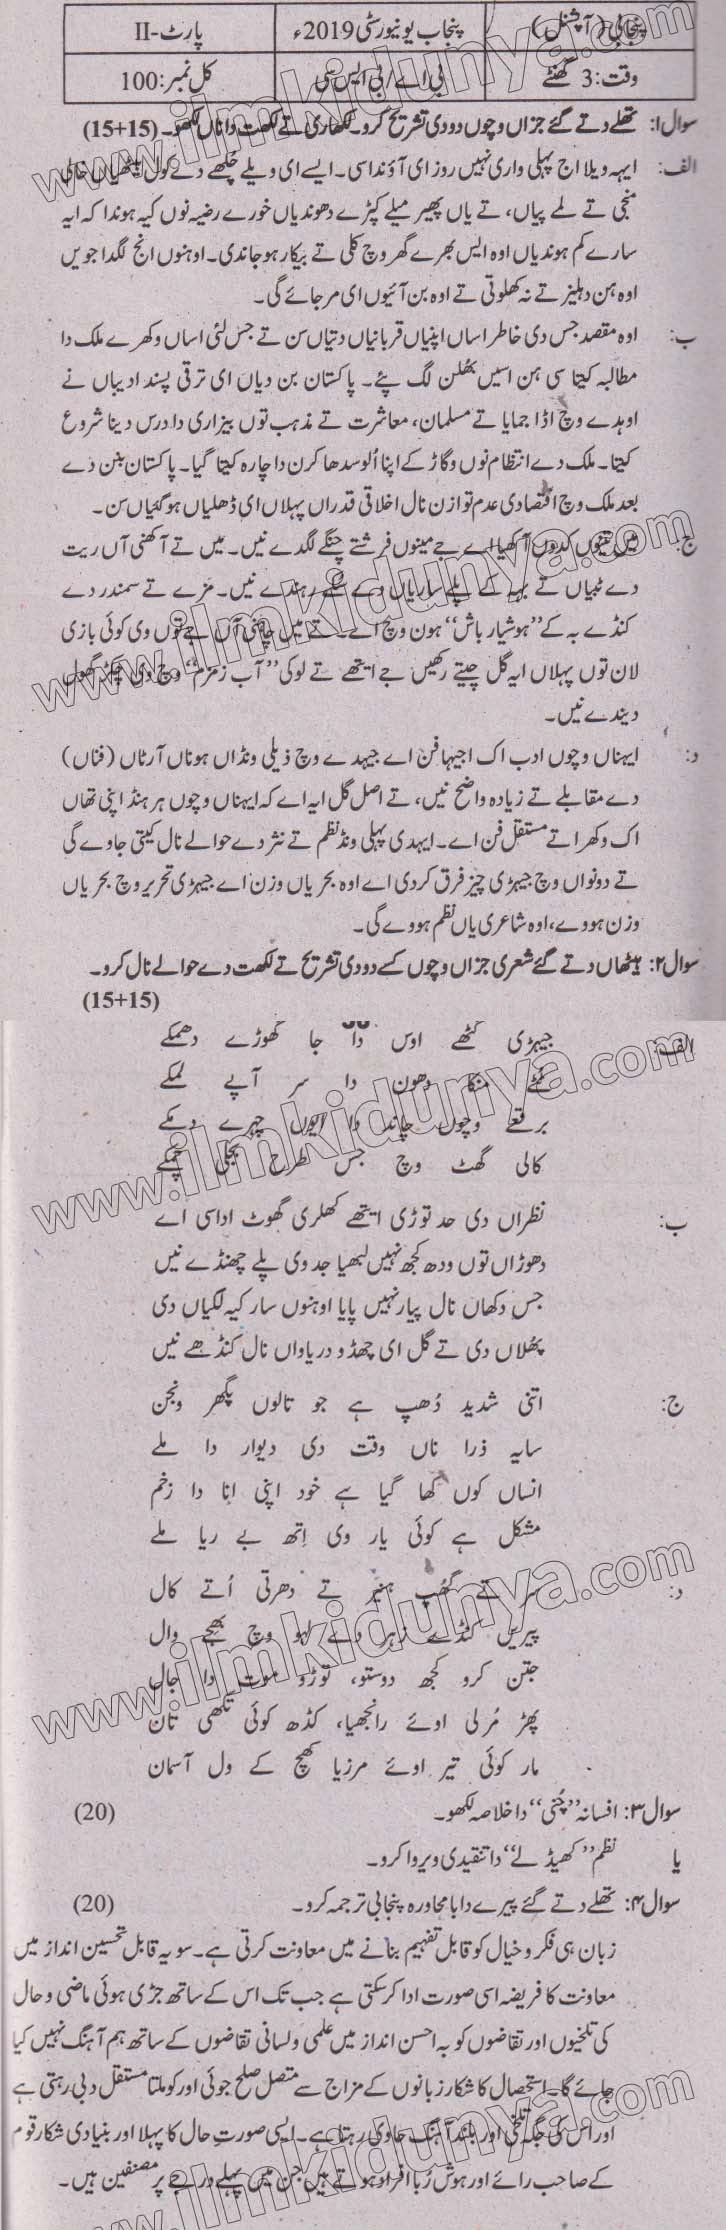 پنجابی (آپشنل) پنجاب یونیورسٹی 2019ء پارٹ-II
وقت: 3 گھنٹے بی اے/بی ایس سی کل نمبر: 100
سوال ۱: تھلے دتے گئے جزاں وچوں دو دی تشریح کرو۔ لکھاری تے لکھت دا ناں لکھو۔ (15+15)
الف: ایہہ ویلا اج پہلی واری نہیں روز ای آؤندا سی۔ ایسے ای ویلے چُلھے دے کول بیٹھیاں خالی
منجی تے لمے پیاں، تے یاں پھیر میلے کپڑے دھوندیاں خورے رضیہ نوں کیہ ہوندا کہ ایہ
سارے کم ہوندیاں اوہ ایس بھرے گھر وچ کلی تے بیکار ہو جاندی۔ اوہنوں انج لگدا جویں
اوہ ہن دہلیز تے نہ کھلوتی تے اوہ بن آئیوں ای مر جائے گی۔
ب: اوہ مقصد جس دی خاطر اساں اپنیاں قربانیاں دتیاں سن تے جس لئی اساں وکھرے ملک دا
مطالبہ کیتا سی ہن اسیں بھُلن لگ پئے۔ پاکستان بن دیاں ای ترقی پسند ادیباں نے
اوہدے وچ اڈا جمایا تے مسلمان، معاشرت تے مذہب توں بیزاری دا درس دینا شروع
کیتا۔ ملک دے انتظام نوں وگاڑ کے اپنا اُلو سدھا کرن دا چارہ کیتا گیا۔ پاکستان بنن دے
بعد ملک وچ اقتصادی عدم توازن نال اخلاقی قدراں پہلاں ای ڈھلیاں ہو گئیاں سن۔
ج: میں تینوں کدوں آکھیا اے جے مینوں فرشتے چنگے لگدے نیں۔ میں تے آکھنی آں ریت
دے ٹبیاں تے بہہ کے پلے ساریاں دے رہندے نیں۔ مزے تے سمندر دے
کنڈے بہ کے ”ہوشیار باش“ ہون وچ اے۔ تے میں چاہنی آں جے توں وی کوئی بازی
لان توں پہلاں ایہ گل چیتے رکھیں جے ایتھے تے لوکی ”آب زمزم“ وچ وی چکڑ گھول
دیندے نیں۔
د: ایہناں وچوں ادب اک اجیہا فن اے جیہدے وچ ذیلی ونڈاں ہوناں آرٹاں (فناں)
دے مقابلے تے زیادہ واضح نیں، تے اصل گل ایہ اے کہ ایہناں وچوں ہر ہنڈ اپنی تھاں
اک وکھرا تے مستقل فن اے۔ ایہدی پہلی ونڈ نظم تے نثر دے حوالے نال کیتی جاوے گی
تے دونواں وچ جیہڑی چیز فرق کردی اے اوہ بحر یاں وزن اے جیہڑی تحریر وچ بحر یاں
وزن ہووے، اوہ شاعری یاں نظم ہووے گی۔
سوال ۲: ہیٹھاں دتے گئے شعری جزاں وچوں کسے دو دی تشریح تے لکھت دے حوالے نال کرو۔
(15+15)
الف: جیہڑی گٹھے اوس دا جا گھوڑے دھمکے
ٹٹے منکا دھون دا سر آپے لمکے
برقعے وچوں چاند دا ایوں چہرے دمکے
کالی گھٹ وچ جس طرح بجلی چمکے
ب: نظراں دی حد توڑی ایتھے کھلری گھوٹ اداسی اے
دھوڑاں توں ودھ کجھ نہیں لبھیا جد وی پلے چھنڈے نیں
جس دکھاں نال پیار نہیں پایا اوہنوں سار کیہ لگیاں دی
پھُلاں دی تے گل ای چھڈو دریاواں نال کنڈھے نیں
ج: اتنی شدید دُھپ ہے جو تالوں پگھر ونجن
سایہ ذرا ناں وقت دی دیوار دا ملے
انساں کوں کھا گیا ہے خود اپنی انا دا زخم
مشکل ہے کوئی یار وی اِتھ بے ریا ملے
د: سر تے گھُپ ہنیر تے دھرتی اُتے کال
پیریں کنڈے زہر دے لہو وچ بھجے وال
جتن کرو کجھ دوستو، توڑو موت دا جال
پھڑ مُرلی اوئے رانجھیا، کڈھ کوئی تکھی تان
مار کوئی تیر اوئے مرزیا کھچ کے ول آسمان
سوال ۳: افسانہ ”چُنی“ دا خلاصہ لکھو۔ (20)
یا نظم ”کھیڈ لے“ دا تنقیدی ویروا کرو۔
سوال ۴: تھلے دتے گئے پیرے دا بامحاورہ پنجابی ترجمہ کرو۔ (20)
زبان ہی فکر و خیال کو قابل تفہیم بنانے میں معاونت کرتی ہے۔ سو یہ قابل تحسین انداز میں
معاونت کا فریضہ اسی صورت ادا کر سکتی ہے جب تک اس کے ساتھ جڑی ہوئی ماضی و حال
کی تلخیوں اور تقاضوں کو بہ احسن انداز میں علمی و لسانی تقاضوں کے ساتھ ہم آہنگ نہیں کیا
جائے گا۔ استحصال کا شکار زبانوں کے مزاج سے متصل صلح جوئی اور کوملتا مستقل دبی رہتی ہے
اور اس کی جگہ تلخی اور بلند آہنگ حاوی رہتا ہے۔ ایسی صورتِ حال کا پہلا اور بنیادی شکار قوم
کے صاحب رائے اور ہوش رُبا افراد ہوتے ہیں جن میں پہلے درجے پر مصنفین ہیں۔
www.ilmkidunya.com
www.ilmkidunya.com
www.ilmkidunya.com
www.ilmkidunya.com
www.ilmkidunya.com